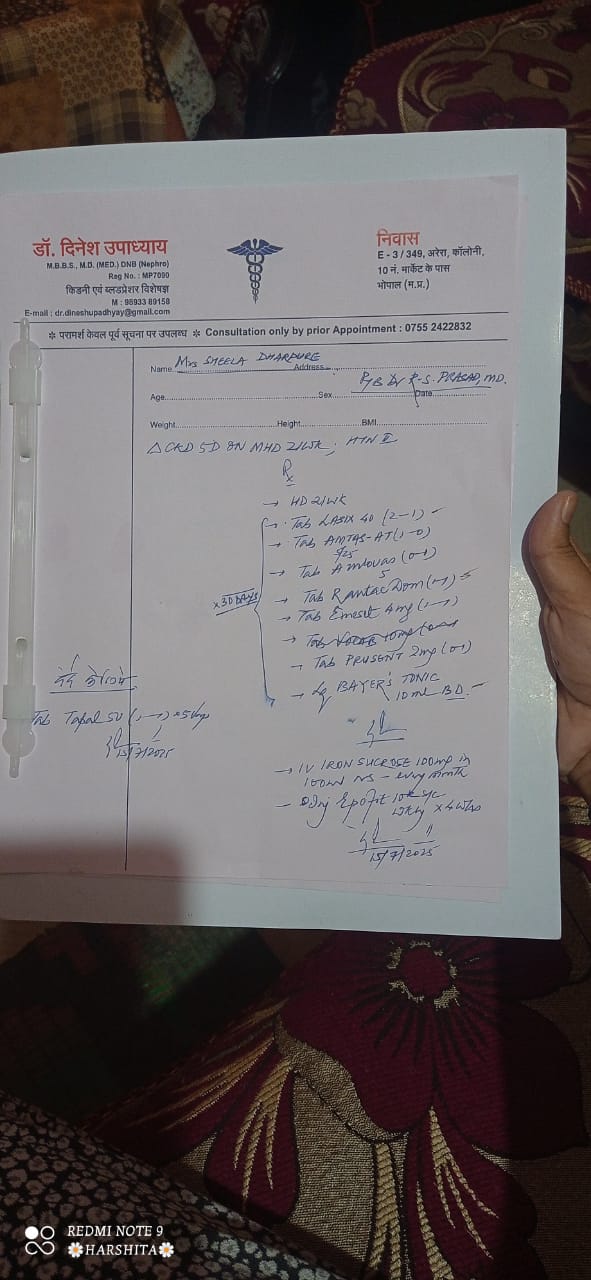 डॉ. दिनेश उपाध्याय
M.B.B.S., M.D. (MED.) DNB (Nephro)
Reg No. : MP7090
किडनी एवं ब्लडप्रेशर विशेषज्ञ
M : 98933 89158
E-mail : dr.dineshupadhyay@gmail.com
निवास
E - 3 / 349, अरेरा, कॉलोनी,
10 नं. मार्केट के पास
भोपाल (म.प्र.)
❈ परामर्श केवल पूर्व सूचना पर उपलब्ध ❈ Consultation only by prior Appointment : 0755 2422832
Name Mrs SHEELA DHARPURE Address
R/B Dr R.S. PRASAD, MD.
Age Sex Date
Weight Height BMI
Δ CKD 5D ON MHD 2/WK; HTN II
Rx
→ HD 2/WK
→ Tab LASIX 40 (2-1)
→ Tab AMTAS-AT (1-0)
5/25
→ Tab Amlovas (0-1)
5
→ Tab Rantac Dom (1-1)
→ Tab Emeset 4mg (1-1)
→ Tab 10mg
→ Tab PRUSENT 2mg (0-1)
→ BAYER'S TONIC
10 ml BD.
x 30 DAYS
Tab Tapal (1-1) x 5 days
15/7/2025
→ IV IRON SUCROSE 100mg in
100ml NS - every month
→ Inj Epofit 10k S/C
wkly x 4 wks
15/7/2025
REDMI NOTE 9
🌼HARSHITA🌼